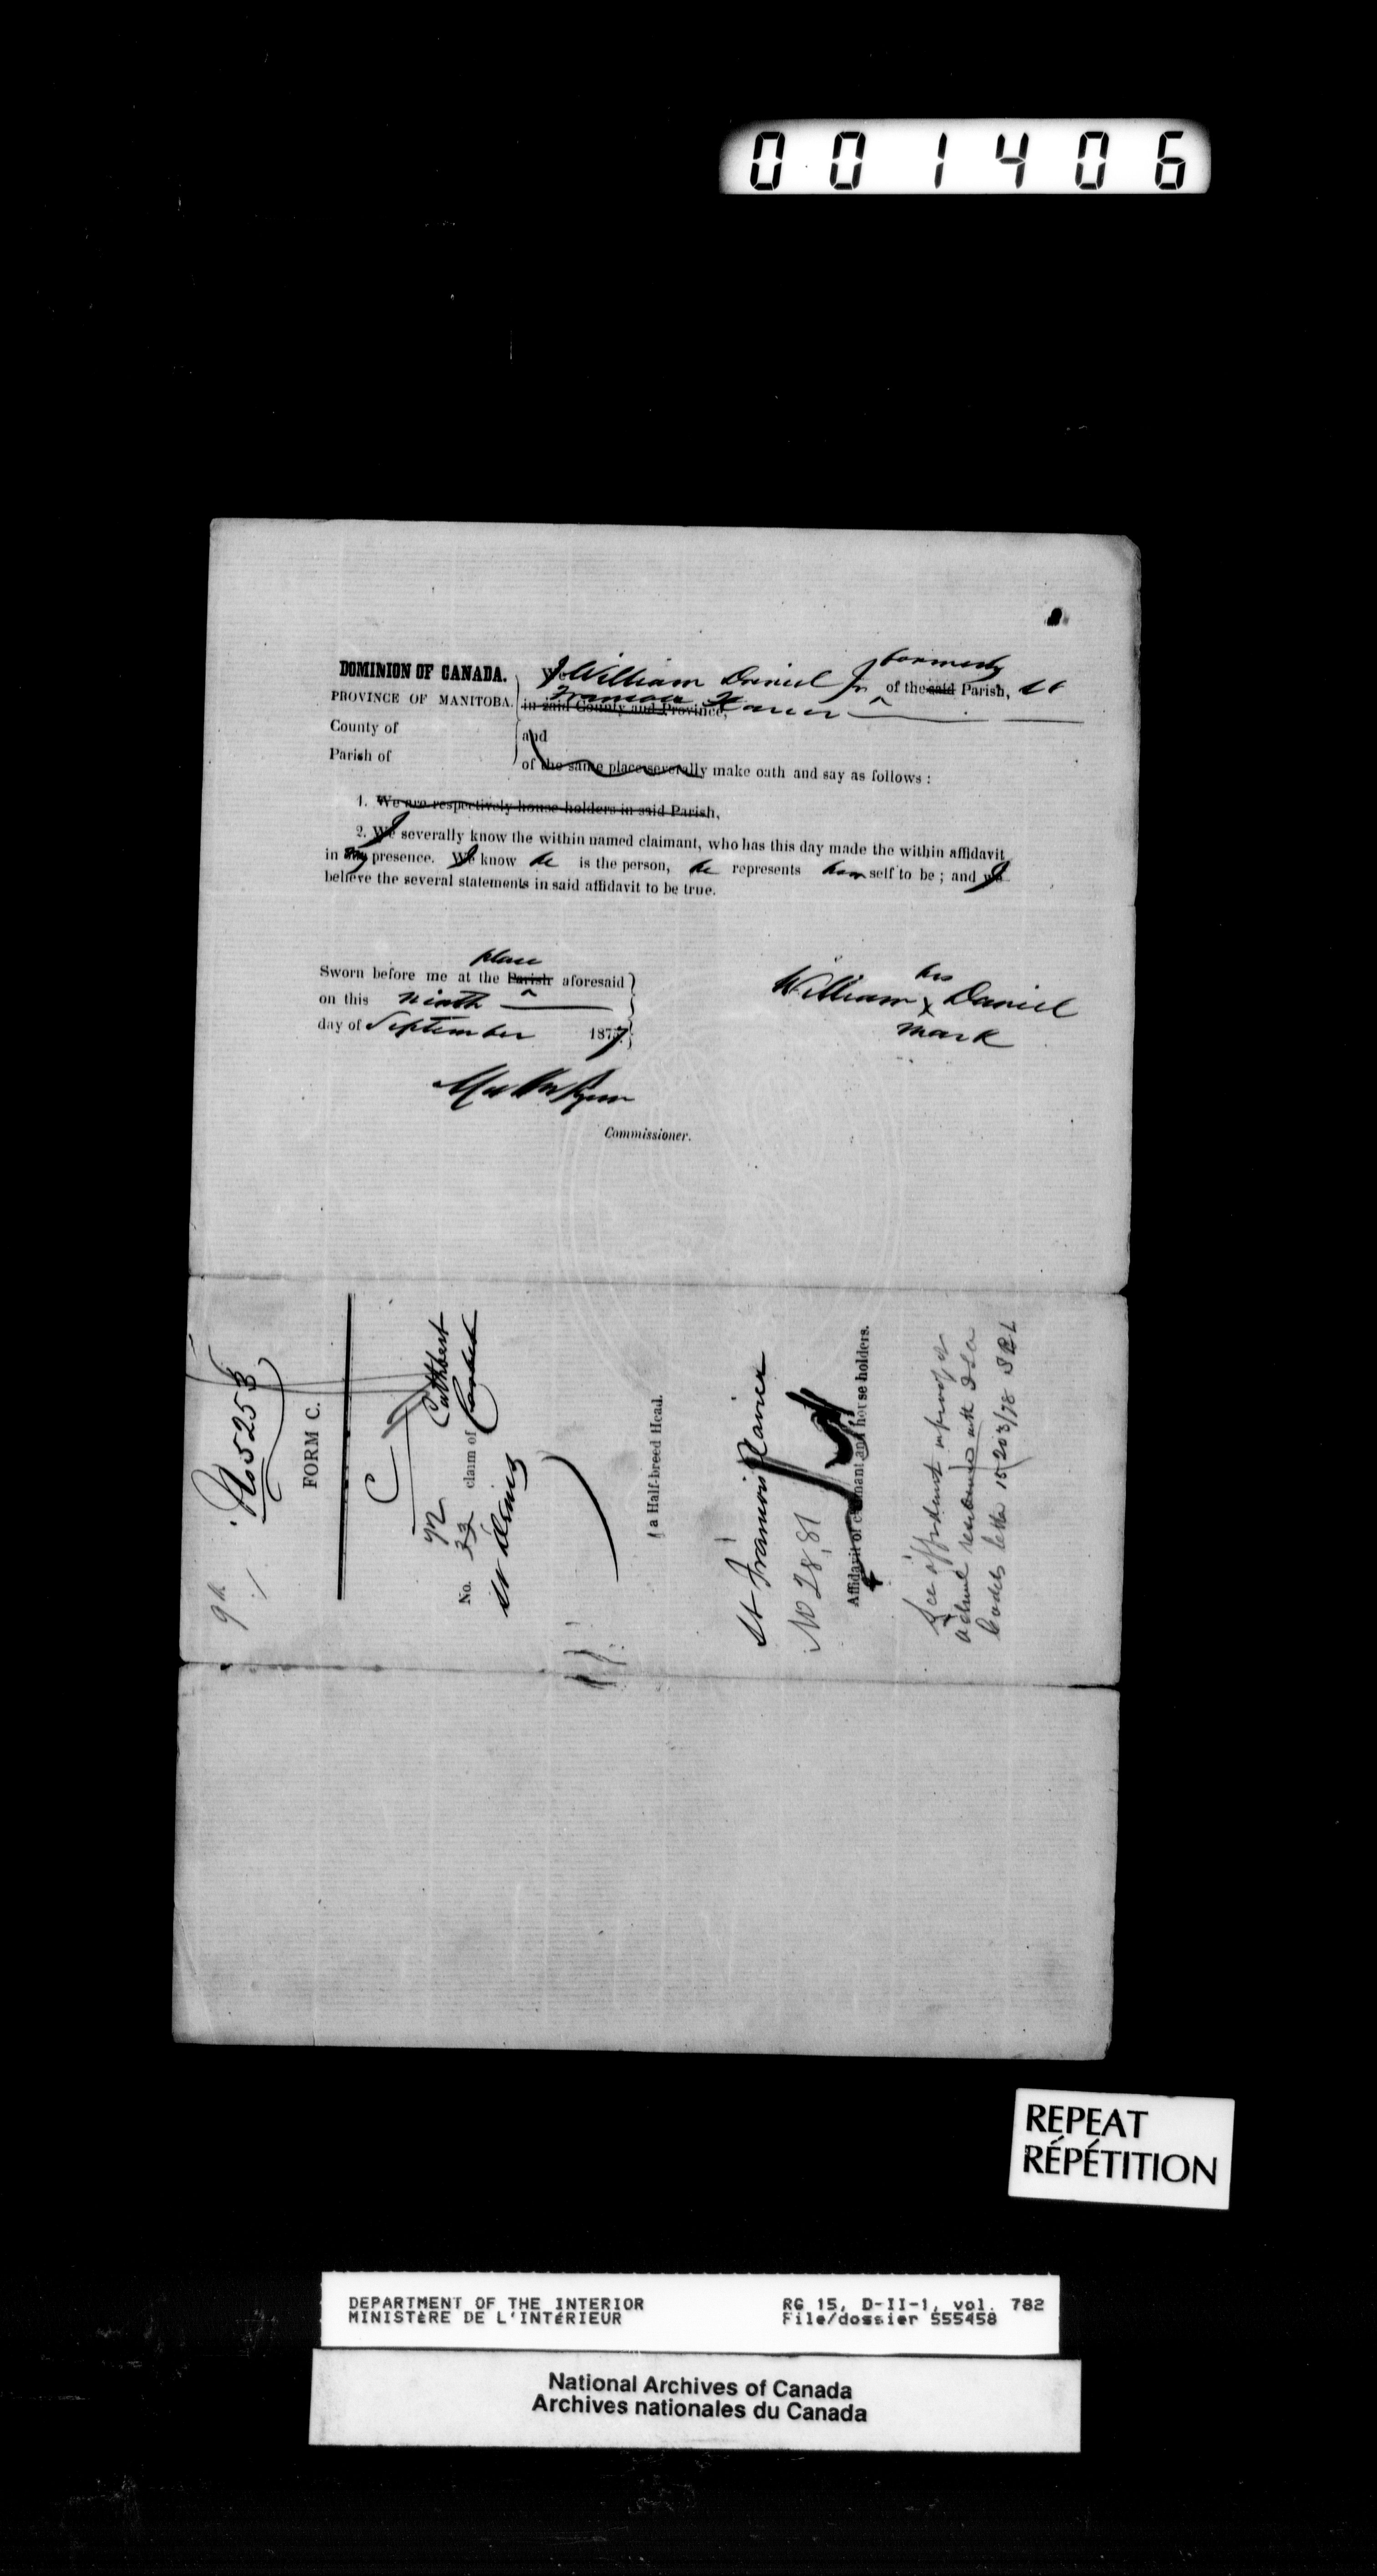 001406
DOMINION OF CANADA.
PROVINCE OF MANITOBA.
County of
Parish of
I William Daniel Jr formerly of the said Parish, St
Francois Xavier
in said County and Province,
and
of the same place severally make oath and say as follows :
1. We are respectively house holders in said Parish,
2. I severally know the within named claimant, who has this day made the within affidavit
in my presence. I know he is the person, he represents him self to be ; and I
believe the several statements in said affidavit to be true.
place
Sworn before me at the Parish aforesaid
on this ninth
day of September 1877
William his x mark Daniel
Commissioner.
No 525
FORM C.
C
No. claim of Cuthbert
a Half-breed Head.
St Francois Xavier
No 28,81
Affidavit of claimant and house holders.
See affidavit in proof of
actual residence with
letter 15203/78
REPEAT
RÉPÉTITION
DEPARTMENT OF THE INTERIOR
MINISTÈRE DE L'INTÉRIEUR
RG 15, D-II-1, vol. 782
File/dossier 555458
National Archives of Canada
Archives nationales du Canada